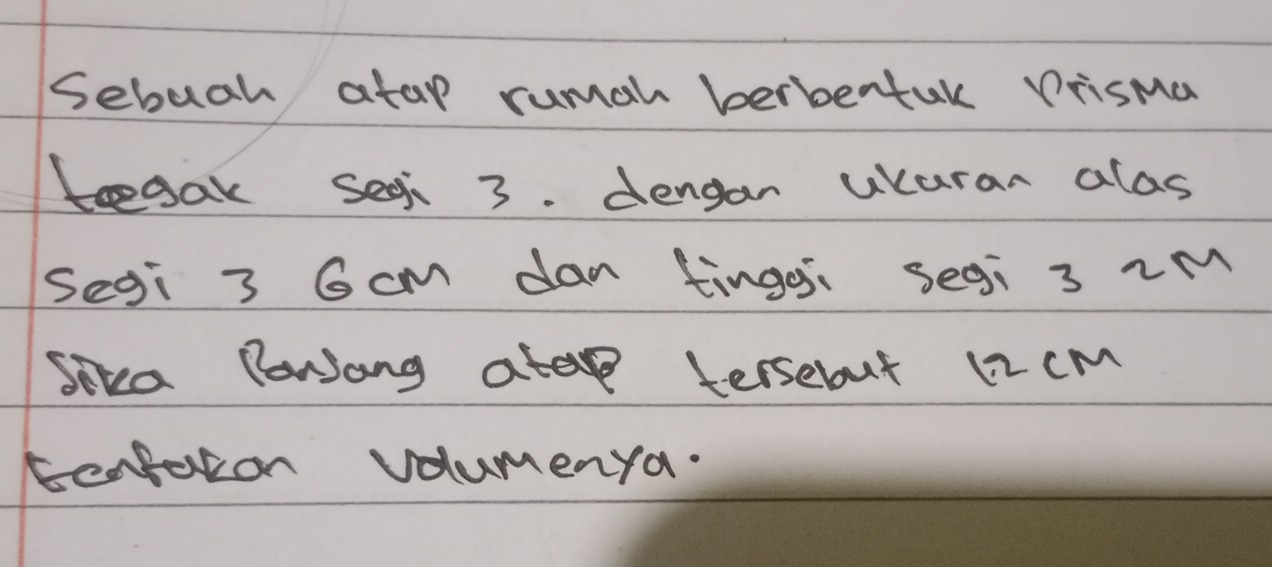 Sebuah atap rumah berbentuk Prisma
tegak segi 3. dengan ukuran alas
Segi 3 6 cm dan tinggi segi 3 2 M
Jika Panjang atap tersebut 12 cm
tentukan volumenya.